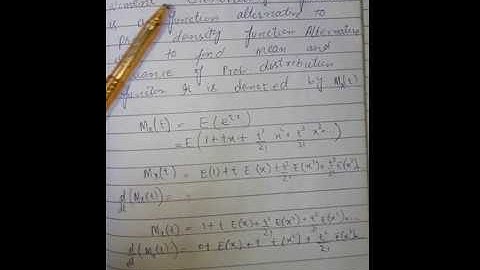 is a function alternating to
density function Alternative
to find mean and
of Prob. distribution
function It is denoted by Mx(t)
Mx(t) = E(e^tx)
= E(1 + tx + t²/2! x² + t³/3! x³ -
Mx(t) = E(1) + t E(x) + t²/2! E(x²) + t³/3! E(x³)-
d/dt (Mx(t)) =
Mx(t) = 1 + t E(x) + t²/2! E(x²) + t³/3! E(x³)...
d/dt (Mx(t)) = 0 + E(x) + t E(x²) + t²/2! E(x³)-